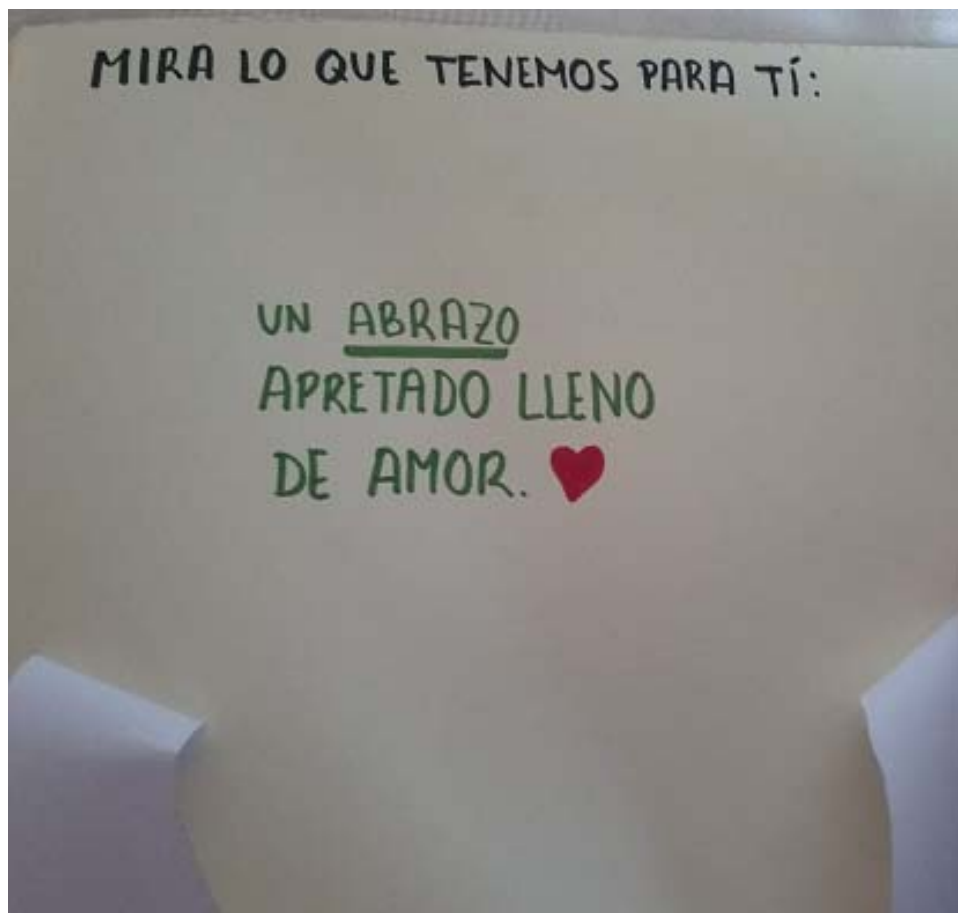 MIRA LO QUE TENEMOS PARA TÍ:
UN ABRAZO
APRETADO LLENO
DE AMOR.